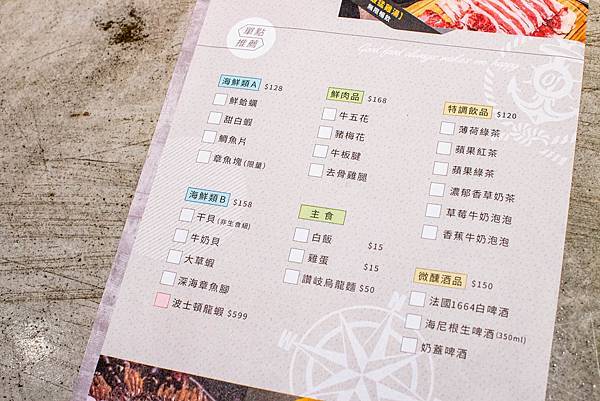 無限暢飲
單點
推薦
海鮮類A $128
鮮蛤蠣
甜白蝦
鯛魚片
章魚塊(限量)
海鮮類B $158
干貝(非生食級)
牛奶貝
大草蝦
深海章魚腳
波士頓龍蝦 $599
鮮肉品 $168
牛五花
豬梅花
牛板腱
去骨雞腿
主食
白飯 $15
雞蛋 $15
讚岐烏龍麵 $50
特調飲品 $120
薄荷綠茶
蘋果紅茶
蘋果綠茶
濃郁香草奶茶
草莓牛奶泡泡
香蕉牛奶泡泡
微醺酒品 $150
法國1664白啤酒
海尼根生啤酒(350ml)
奶蓋啤酒
N
W